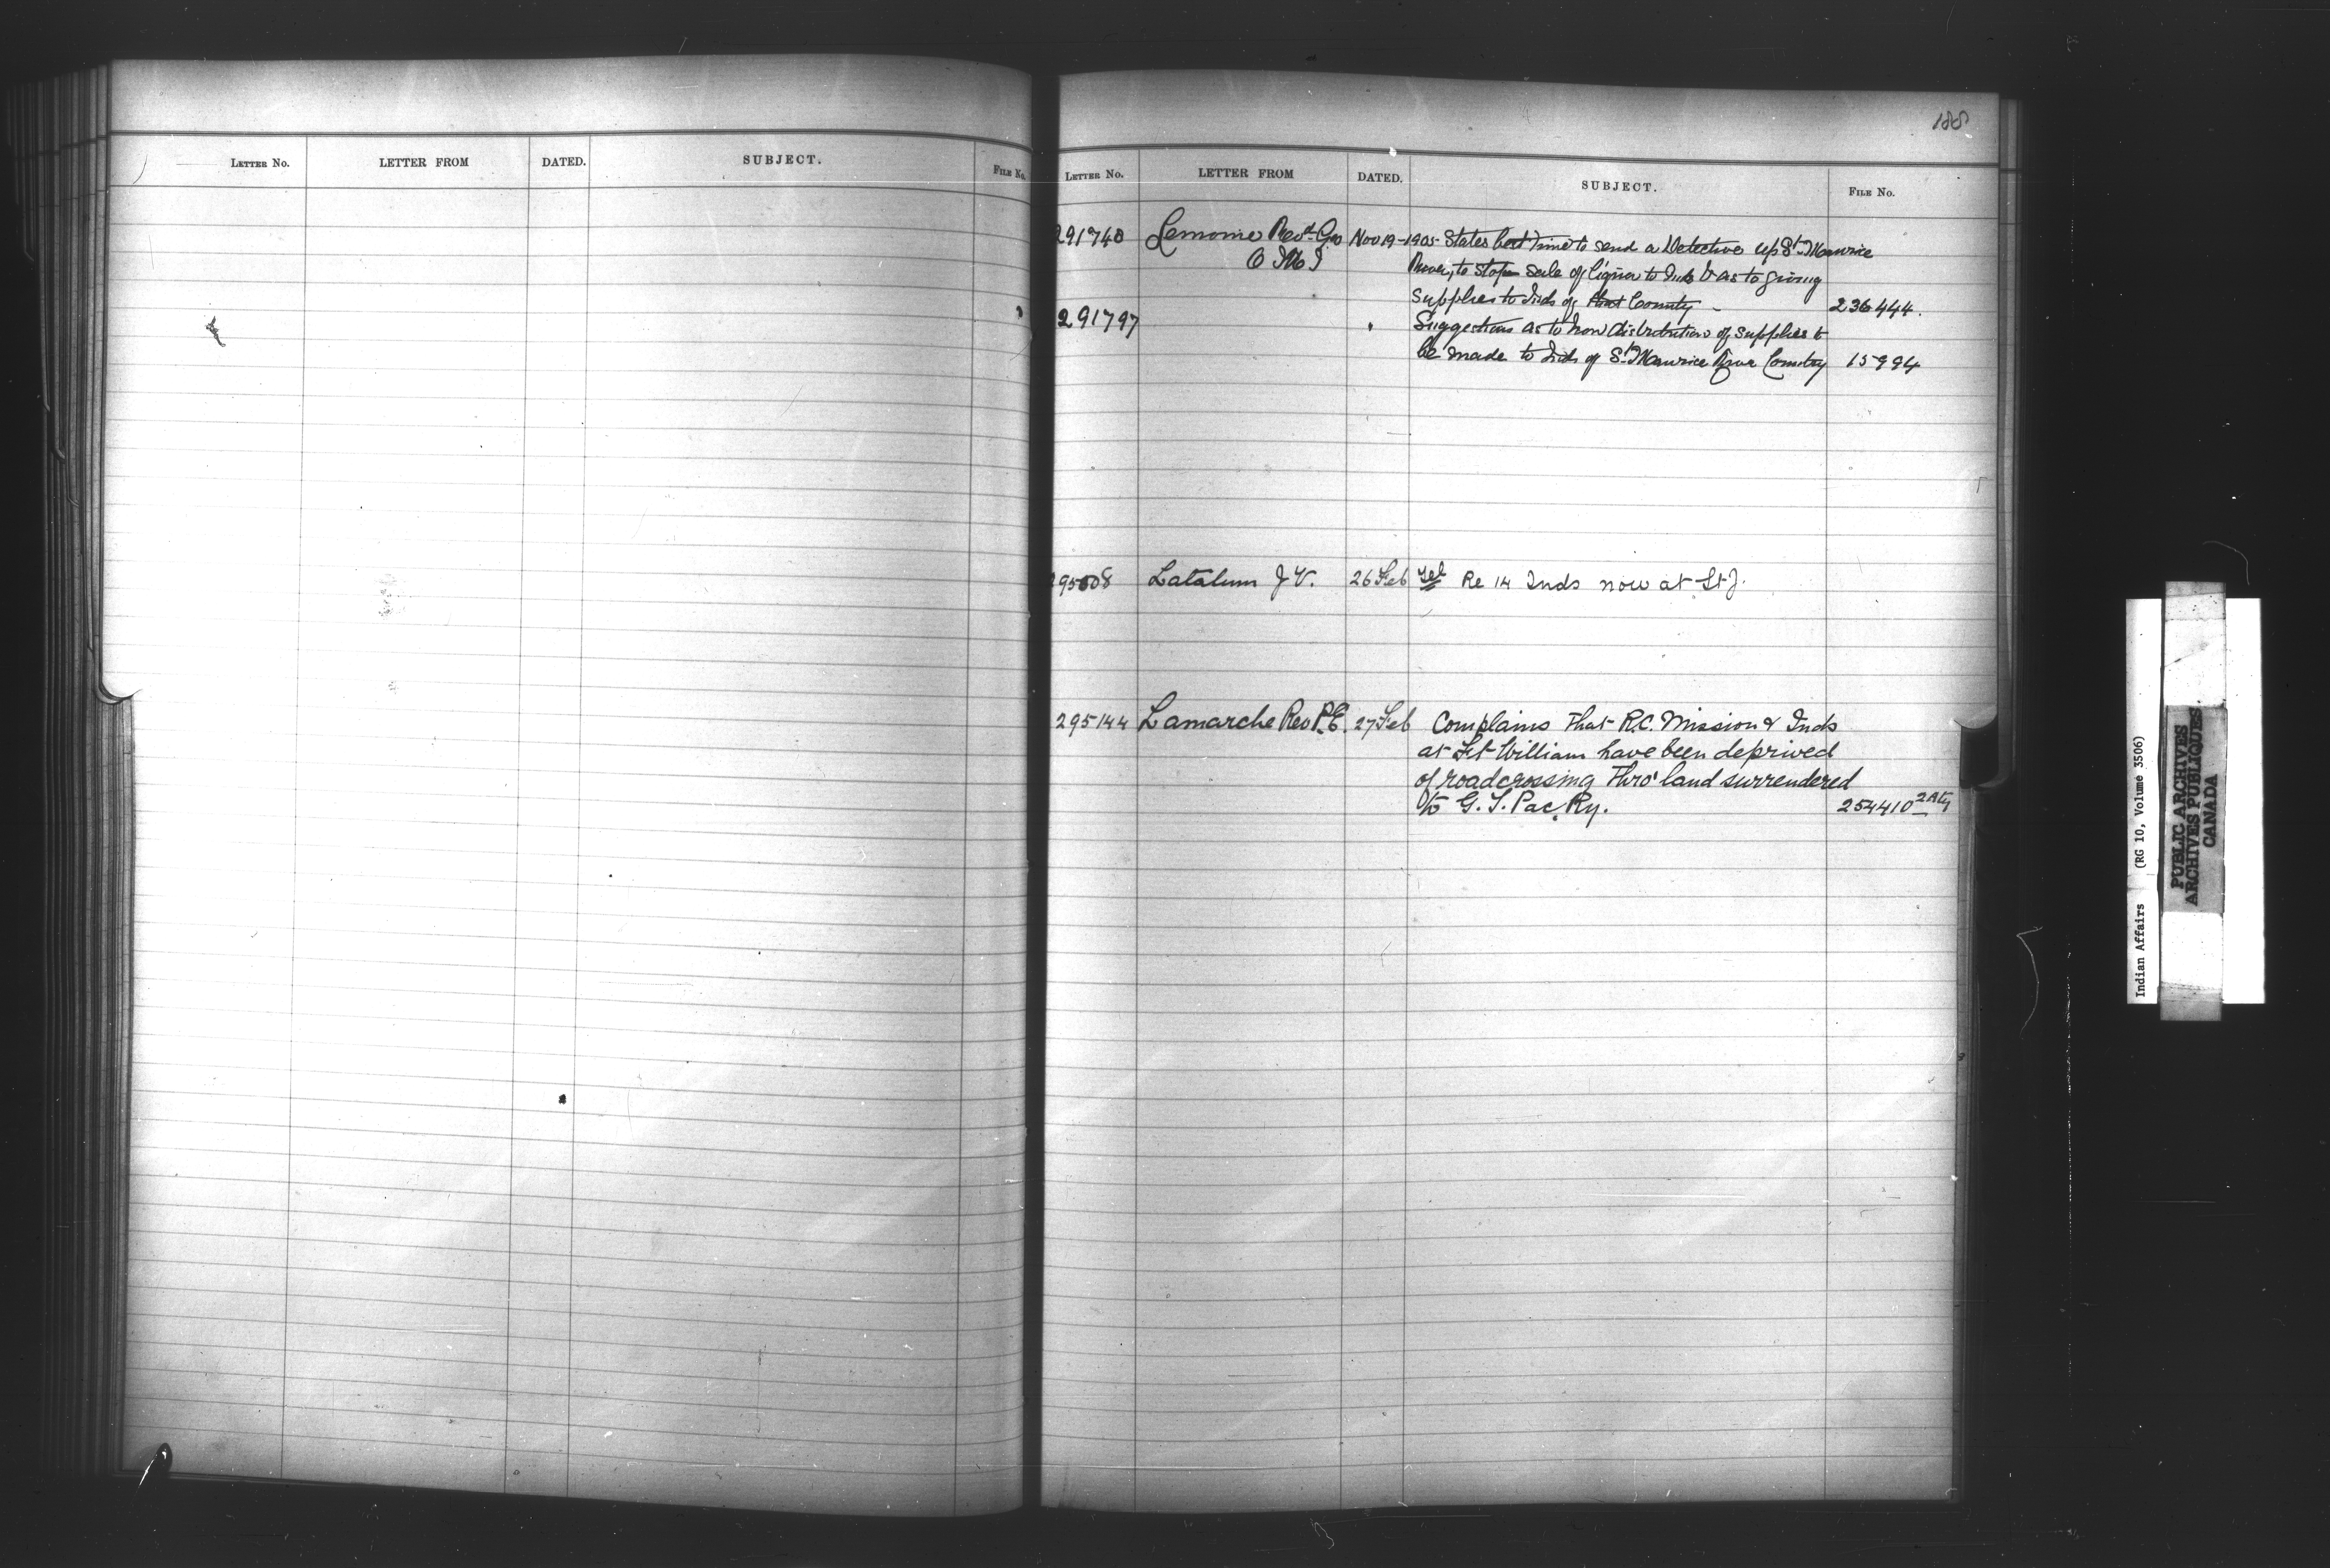 LETTER NO. LETTER FROM DATED. SUBJECT. FILE No.
188
LETTER NO. LETTER FROM DATED. SUBJECT. FILE No.
291740 Lemoine Revd. Geo Nov 19-1905- States best time to send a Detective up St. Maurice
O M I River, to stop sale of liquor to Inds & as to giving
supplies to Inds of that County - 236444.
291797 " Suggestions as to how distribution of supplies to
be made to Inds of St. Maurice River Country 15994
295008 Latalum J V. 26 Feb Tel Re 14 Inds now at St J.
295144 Lamarche Rev P.E. 27 Feb Complains that R.C. Mission & Inds
at Ft William have been deprived
of roadcrossing thro' land surrendered
to G. T. Pac. Ry. 254410
Indian Affairs (RG 10, Volume 3506)
PUBLIC ARCHIVES
ARCHIVES PUBLIQUES
CANADA